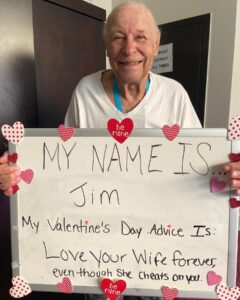 be mine
MY NAME IS...
Jim
My Valentine's Day Advice Is:
Love your Wife forever,
even though She cheats on you.
be mine